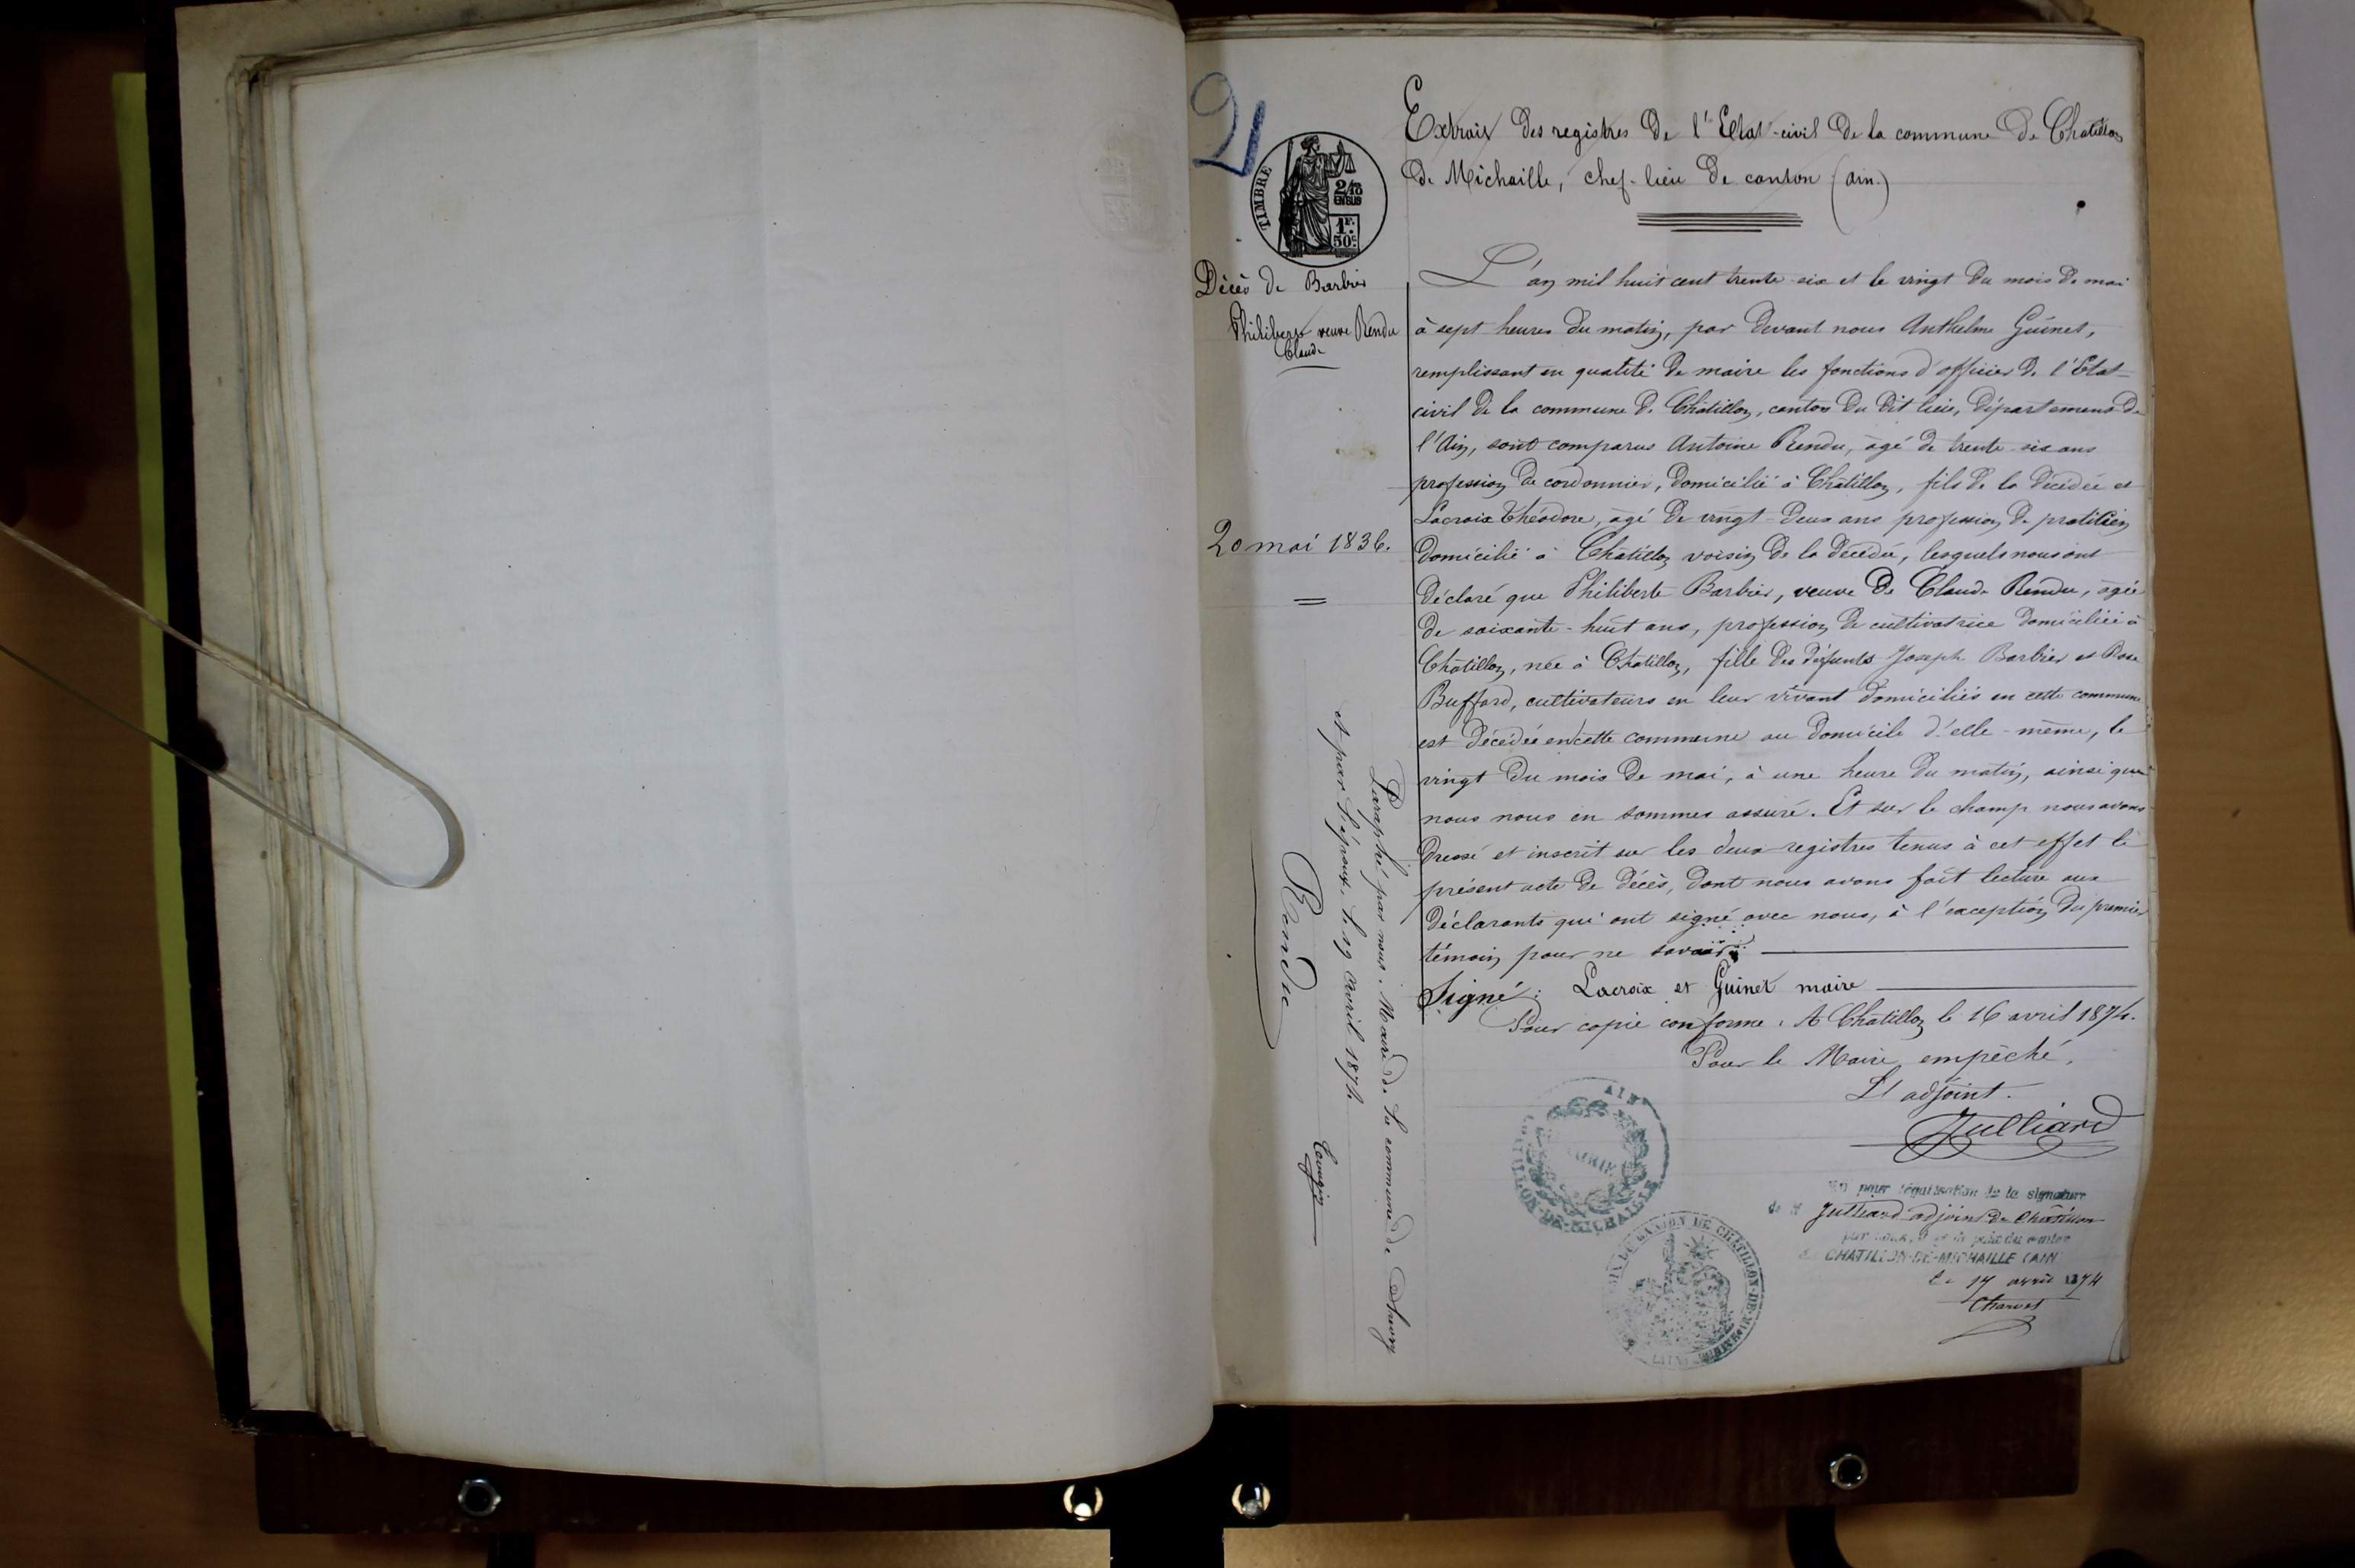 2
Extrait des registres de l'Etat-civil de la commune de Chatillon
de Michaille, chef-lieu de canton (ain.)
TIMBRE
2/10
EN SUS
1F.
50c
Décès de Barbier
Philiberte veuve Rendu
Claude
20 mai 1836.
L'an mil huit cent trente-six et le vingt du mois de mai
à sept heures du matin, par devant nous Anthelme Guinet,
remplissant en qualité de maire les fonctions d'officier de l'Etat-
civil de la commune de Châtillon, canton du dit lieu, département de
l'Ain, sont comparus Antoine Rendu, âgé de trente-six ans
profession de cordonnier, domicilié à Châtillon, fils de la décédée et
Lacroix Théodore, âgé de vingt-deux ans profession de praticien
domicilié à Châtillon voisin de la décédée, lesquels nous ont
déclaré que Philiberte Barbier, veuve de Claude Rendu, âgée
de soixante-huit ans, profession de cultivatrice domiciliée à
Châtillon, née à Châtillon, fille des défunts Joseph Barbier et Rose
Buffard, cultivateurs en leur vivant domiciliés en cette commune
est décédée en cette commune au domicile d'elle-même, le
vingt du mois de mai, à une heure du matin, ainsi que
nous nous en sommes assuré. Et sur le champ nous avons
dressé et inscrit sur les deux registres tenus à cet effet le
présent acte de décès, dont nous avons fait lecture aux
déclarants qui ont signé avec nous, à l'exception du premier
témoin pour ne savoir
Signé: Lacroix et Guinet maire
Pour copie conforme. A Châtillon le 16 avril 1874.
Pour le Maire empêché,
L'adjoint.
Julliard
Paraphé par nous, Maire de la commune de
et par l'époux, le 19 Avril 1874
Rendu
AIN
MAIRIE
CHATILLON-DE-MICHAILLE
CANTON DE CHATILLON-DE-MICHAILLE
Vu pour légalisation de la signature
de M Julliard adjoint de Chatillon
par nous, juge de paix du canton
de CHATILLON-DE-MICHAILLE (AIN)
le 17 avril 1874
Charvet